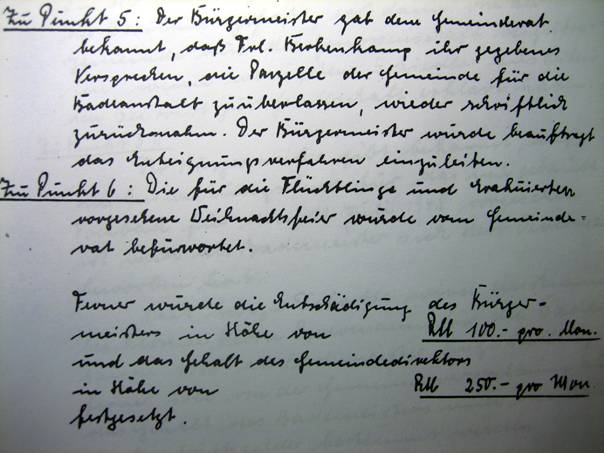 Zu Punkt 5: Der Bürgermeister gab dem Gemeinderat
bekannt, daß Frl. Berkenkamp ihr gegebenes
Versprechen, die Parzelle der Gemeinde für die
Badeanstalt zu überlassen, wieder schriftlich
zurücknahm. Der Bürgermeister wurde beauftragt
das Enteignungsverfahren einzuleiten.
Zu Punkt 6: Die für die Flüchtlinge und Evakuierten
vorgesehene Weihnachtsfeier wurde vom Gemeinde=
rat befürwortet.
Ferner wurde die Entschädigung des Bürger-
meisters in Höhe von RM 100.- pro. Mon.
und das Gehalt des Gemeindedirektors
in Höhe von RM 250.- pro Mon
festgesetzt.